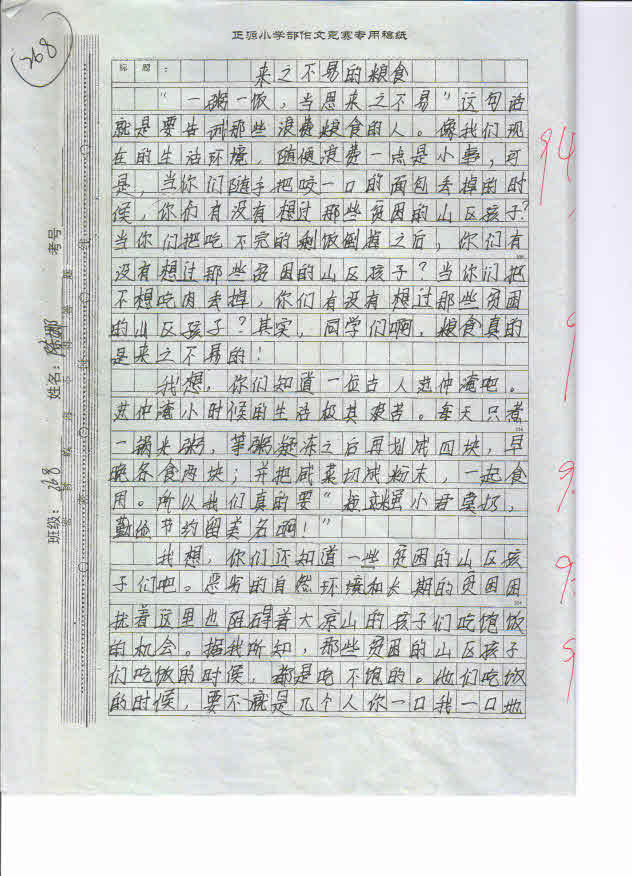 正源小学部作文竞赛专用稿纸
268
标题：
来之不易的粮食
“一粥一饭，当思来之不易”这句话
就是要告诉那些浪费粮食的人。像我们现
在的生活环境，随便浪费一点是小事，可
是，当你们随手把咬一口的面包丢掉的时
候，你们有没有想过那些贫困的山区孩子？
当你们把吃不完的剩饭倒掉之后，你们有
没有想过那些贫困的山区孩子？当你们把
不想吃肉丢掉，你们有没有想过那些贫困
的山区孩子？其实，同学们啊，粮食真的
是来之不易的！
我想，你们知道一位古人范仲淹吧。
范仲淹小时候的生活极其艰苦。每天只煮
一锅米粥，等粥凝冻之后再划成四块，早
晚各食两块；并把咸菜切成粉末，一起食
用。所以我们真的要“小君莫扔，
勤俭节约留美名啊！”
我想，你们还知道一些贫困的山区孩
子们吧。恶劣的自然环境和长期的贫困困
扰着这里也阻碍着大凉山的孩子们吃饱饭
的机会。据我所知，那些贫困的山区孩子
们吃饭的时候，都是吃不饱的。他们吃饭
的时候，要不就是几个人你一口我一口地
考号
姓名：
班级：268
94